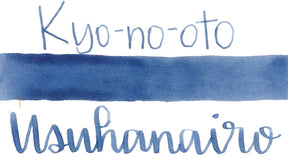 Kyo-no-oto
Usuhanairo